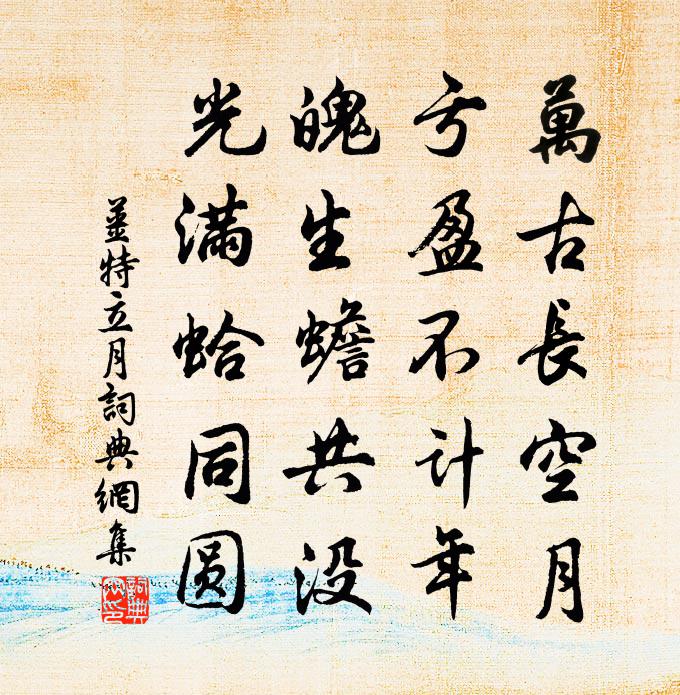 萬古長空月
亏盈不计年
魄生蟾共没
光满蛤同圆
姜特立月詞典網集